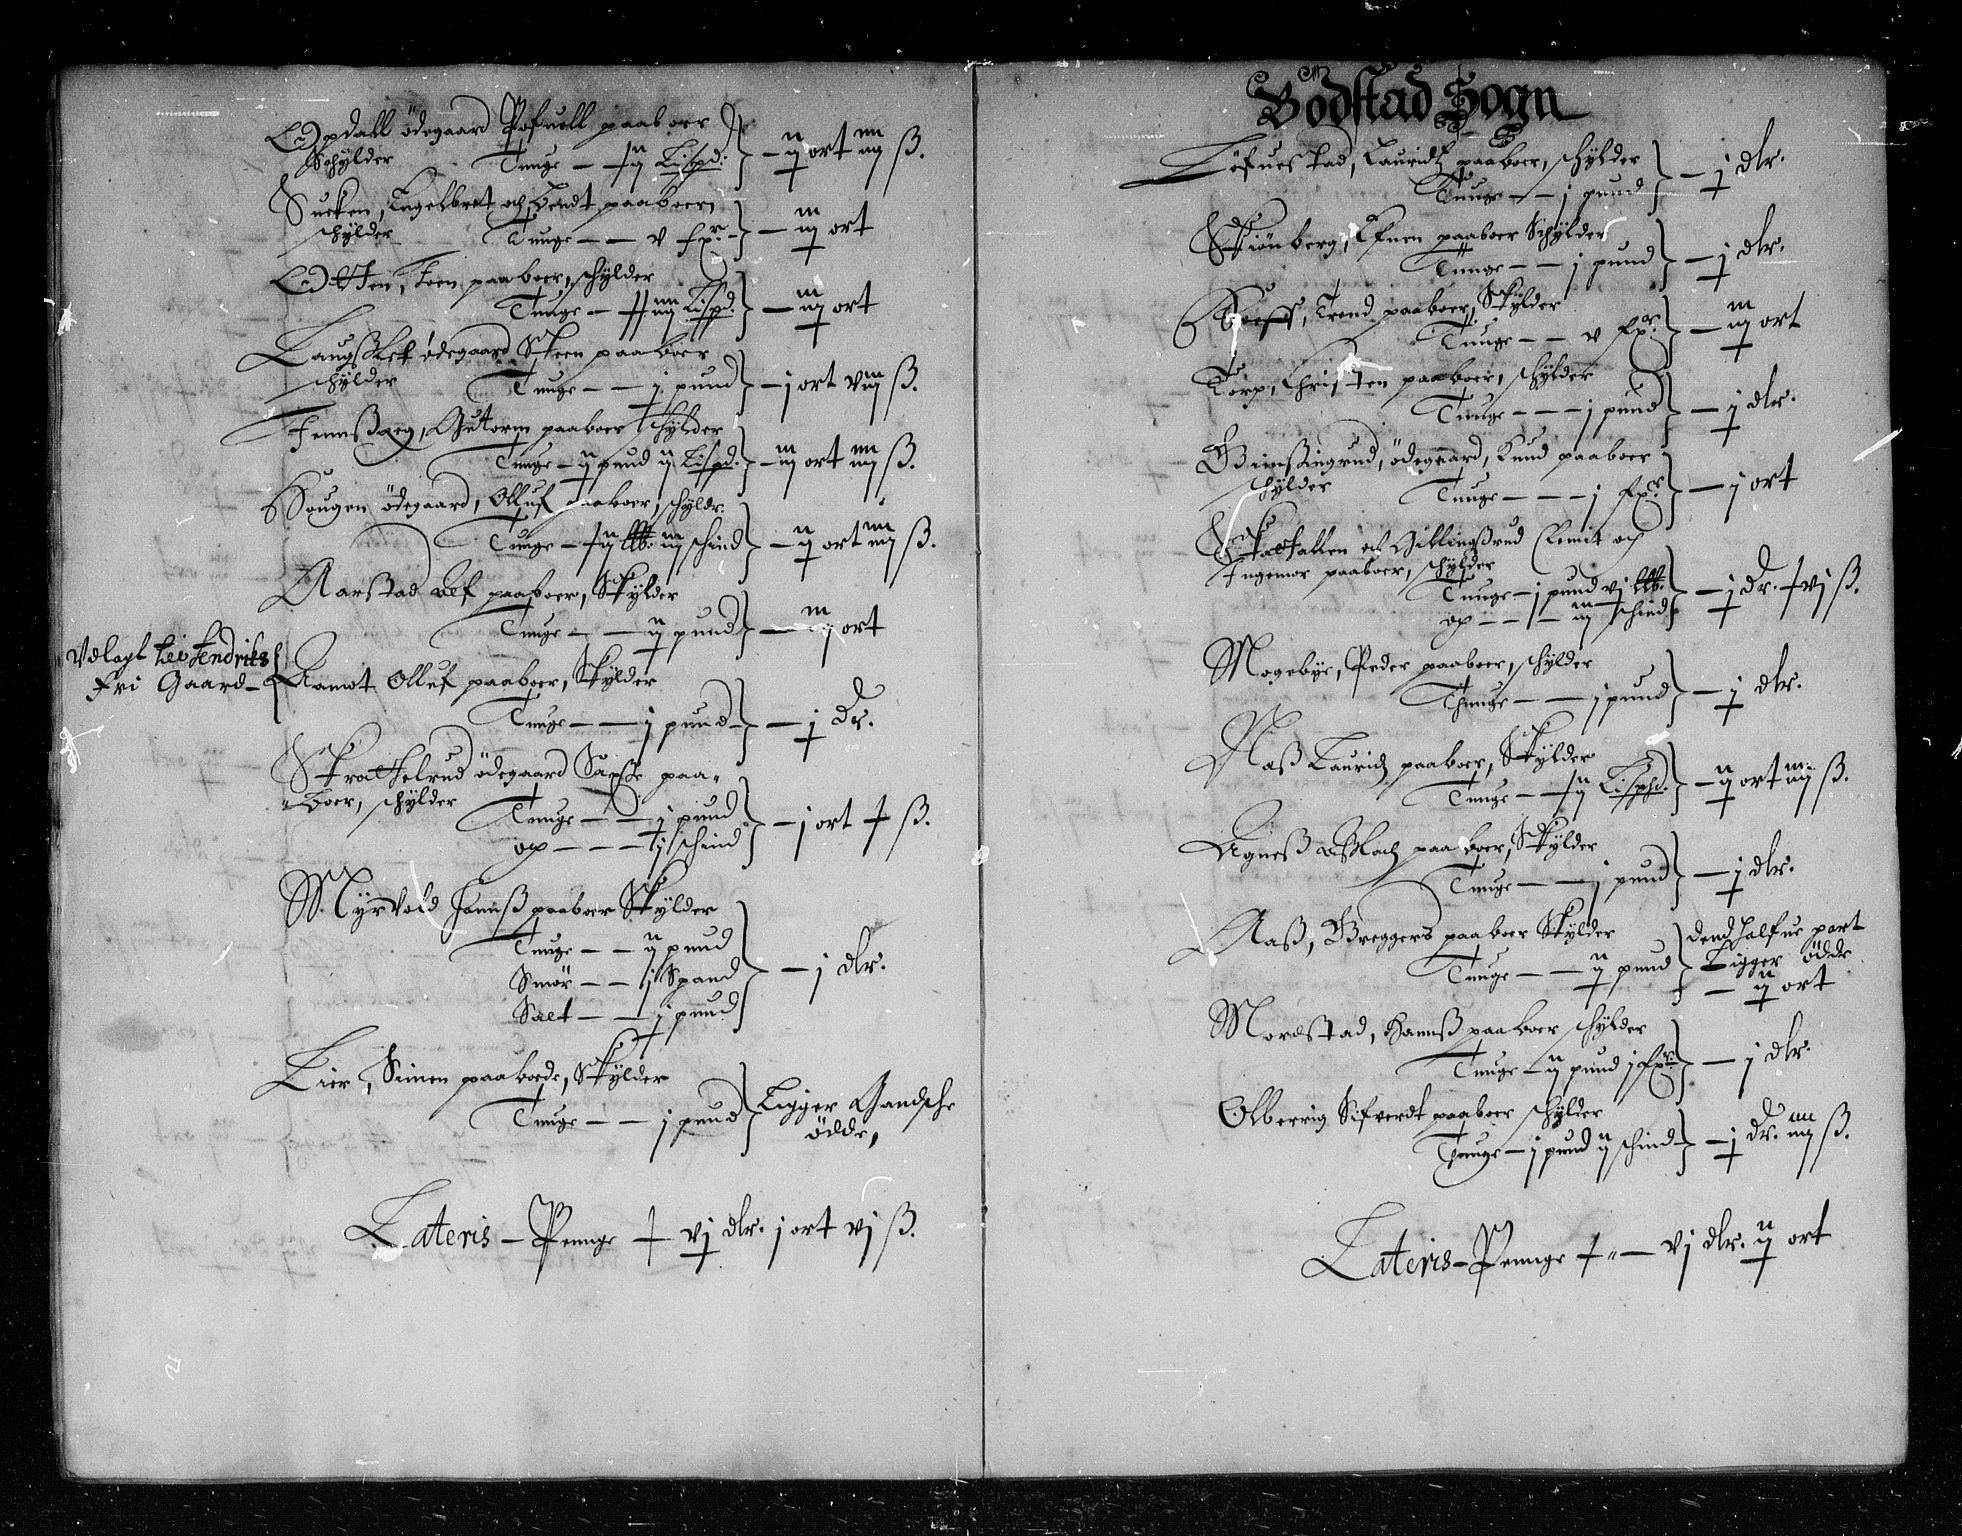 Opdall ödegaard Pofuell paaboer
Schylder Tunge — ½ ij Lispd: — ij ort iiij ß.
Sucken, Engelbret och Bendt paaboer
schylder Tunge — — v fxr. — iij ort
Otten, Joen paaboer, schylder
Tunge — iiij Lispd. — iij ort
ödegaard Steen paaboer
schylder Tunge — — j pund — j ort viij ß.
Guttorm paaboer schylder
Tunge — ij pund ij Lispd. — iij ort iiij ß.
Hougen ödegaard, Olluf paaboer, schyldr.
Tunge — ij llb: iij schind — ij ort iiij ß.
Aarstad paaboer, Skylder
Tunge — — ij pund — iij ort
Vdlagt hei Hendriks
Fri Gaard —
Aamot Olluf paaboer, Skylder
Tunge — — j pund — j Dr.
Skrattelrud ödegaard paa-
-boer, schylder
Tunge — — j pund
och — — — ij schind — j ort ß.
Myrvold Hanns paaboer Skylder
Tunge — — ij pund
Smör — — j Spand — j dlr.
Salt — — j pund
Lier, Simen paaboede, Skylder
Tunge — — j pund Ligger Gandsche
ödde,
Lateris — Penge — vj dlr. j ort vj ß.
Bödstad Sogn
Löfuestad, Lauridtz paaboer, schylder
Tunge — — j pund — j dlr.
Skiönberg, Efuen paaboer Schylder
Tunge — — j pund — j dlr.
Hoeff, Trond paaboer, Skylder
Tunge — — v fxr. — iij ort
Torp, Christen paaboer, schylder
Tunge — — — j pund — j dlr.
Grimssingrud, ödegaard, Knud paaboer
schylder Tunge — — — j fxr. — j ort
Skattallen och Gillingsrud Clemit och
Ingemor paaboer, schylder
Tunge — j pund vj llb:
och — — — iij schind — j Dr. vj ß.
Mogebye, Peder paaboer, schylder
Thunge — — j pund — j dlr.
Naß Lauridz paaboer, Skylder
Tunge — ij Lispd. — ij ort iiij ß.
Agness Aßlach paaboer, Skylder
Tunge — — j pund — j dlr.
Aaß, Greggers paaboer Skylder
Tunge — — ij pund
dend halfue part
Ligger ödde
— ij ort
Mordstad, Hanns paaboer schylder
Tunge — ij pund j fxr. — j dlr.
Olberrig Sifverdt paaboer schylder
Tunge — j pund ij schind — j Dr. iiij ß.
Lateris — Penge — vj dlr. ij ort